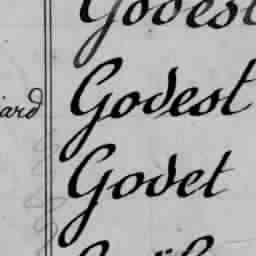 Godest
iard Godest
Godet